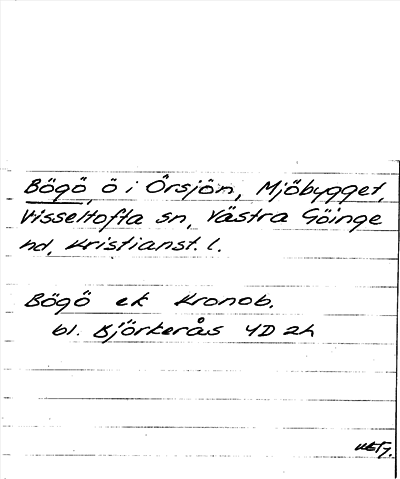 Bögö, ö i Örsjön, Mjöbygget,
Visseltofta sn, Västra Göinge
hd, Kristianst. l.
Bögö ek Kronob.
bl. Björkerås 4D 2h